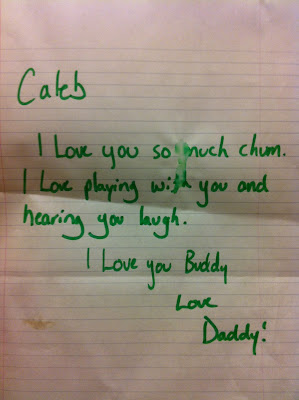 Caleb
I Love you so much chum.
I Love playing with you and
hearing you laugh.
I Love you Buddy
Love
Daddy!